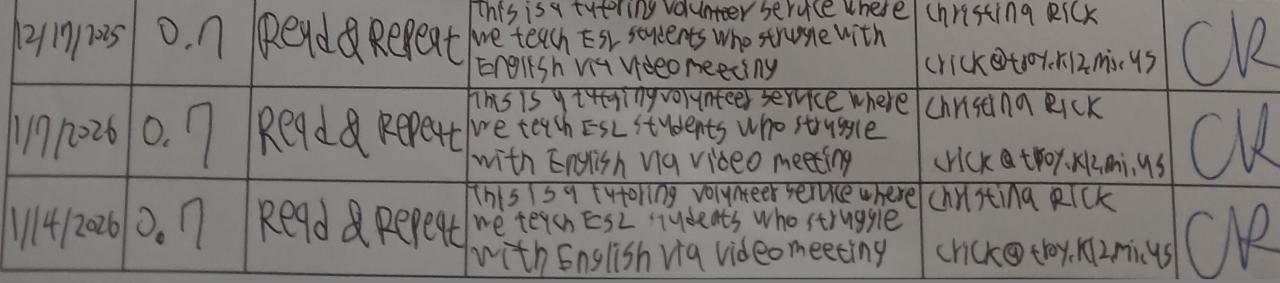 12/17/2025 0.7 Read & Repeat This is a tutoring volunteer service where we teach ESL students who struggle with English via video meeting Christina Rick crick@troy.k12.mi.us CR
1/7/2026 0.7 Read & Repeat This is a tutoring volunteer service where we teach ESL students who struggle with English via video meeting Christina Rick crick@troy.k12.mi.us CR
1/14/2026 0.7 Read & Repeat This is a tutoring volunteer service where we teach ESL students who struggle with English via video meeting Christina Rick crick@troy.k12.mi.us CR